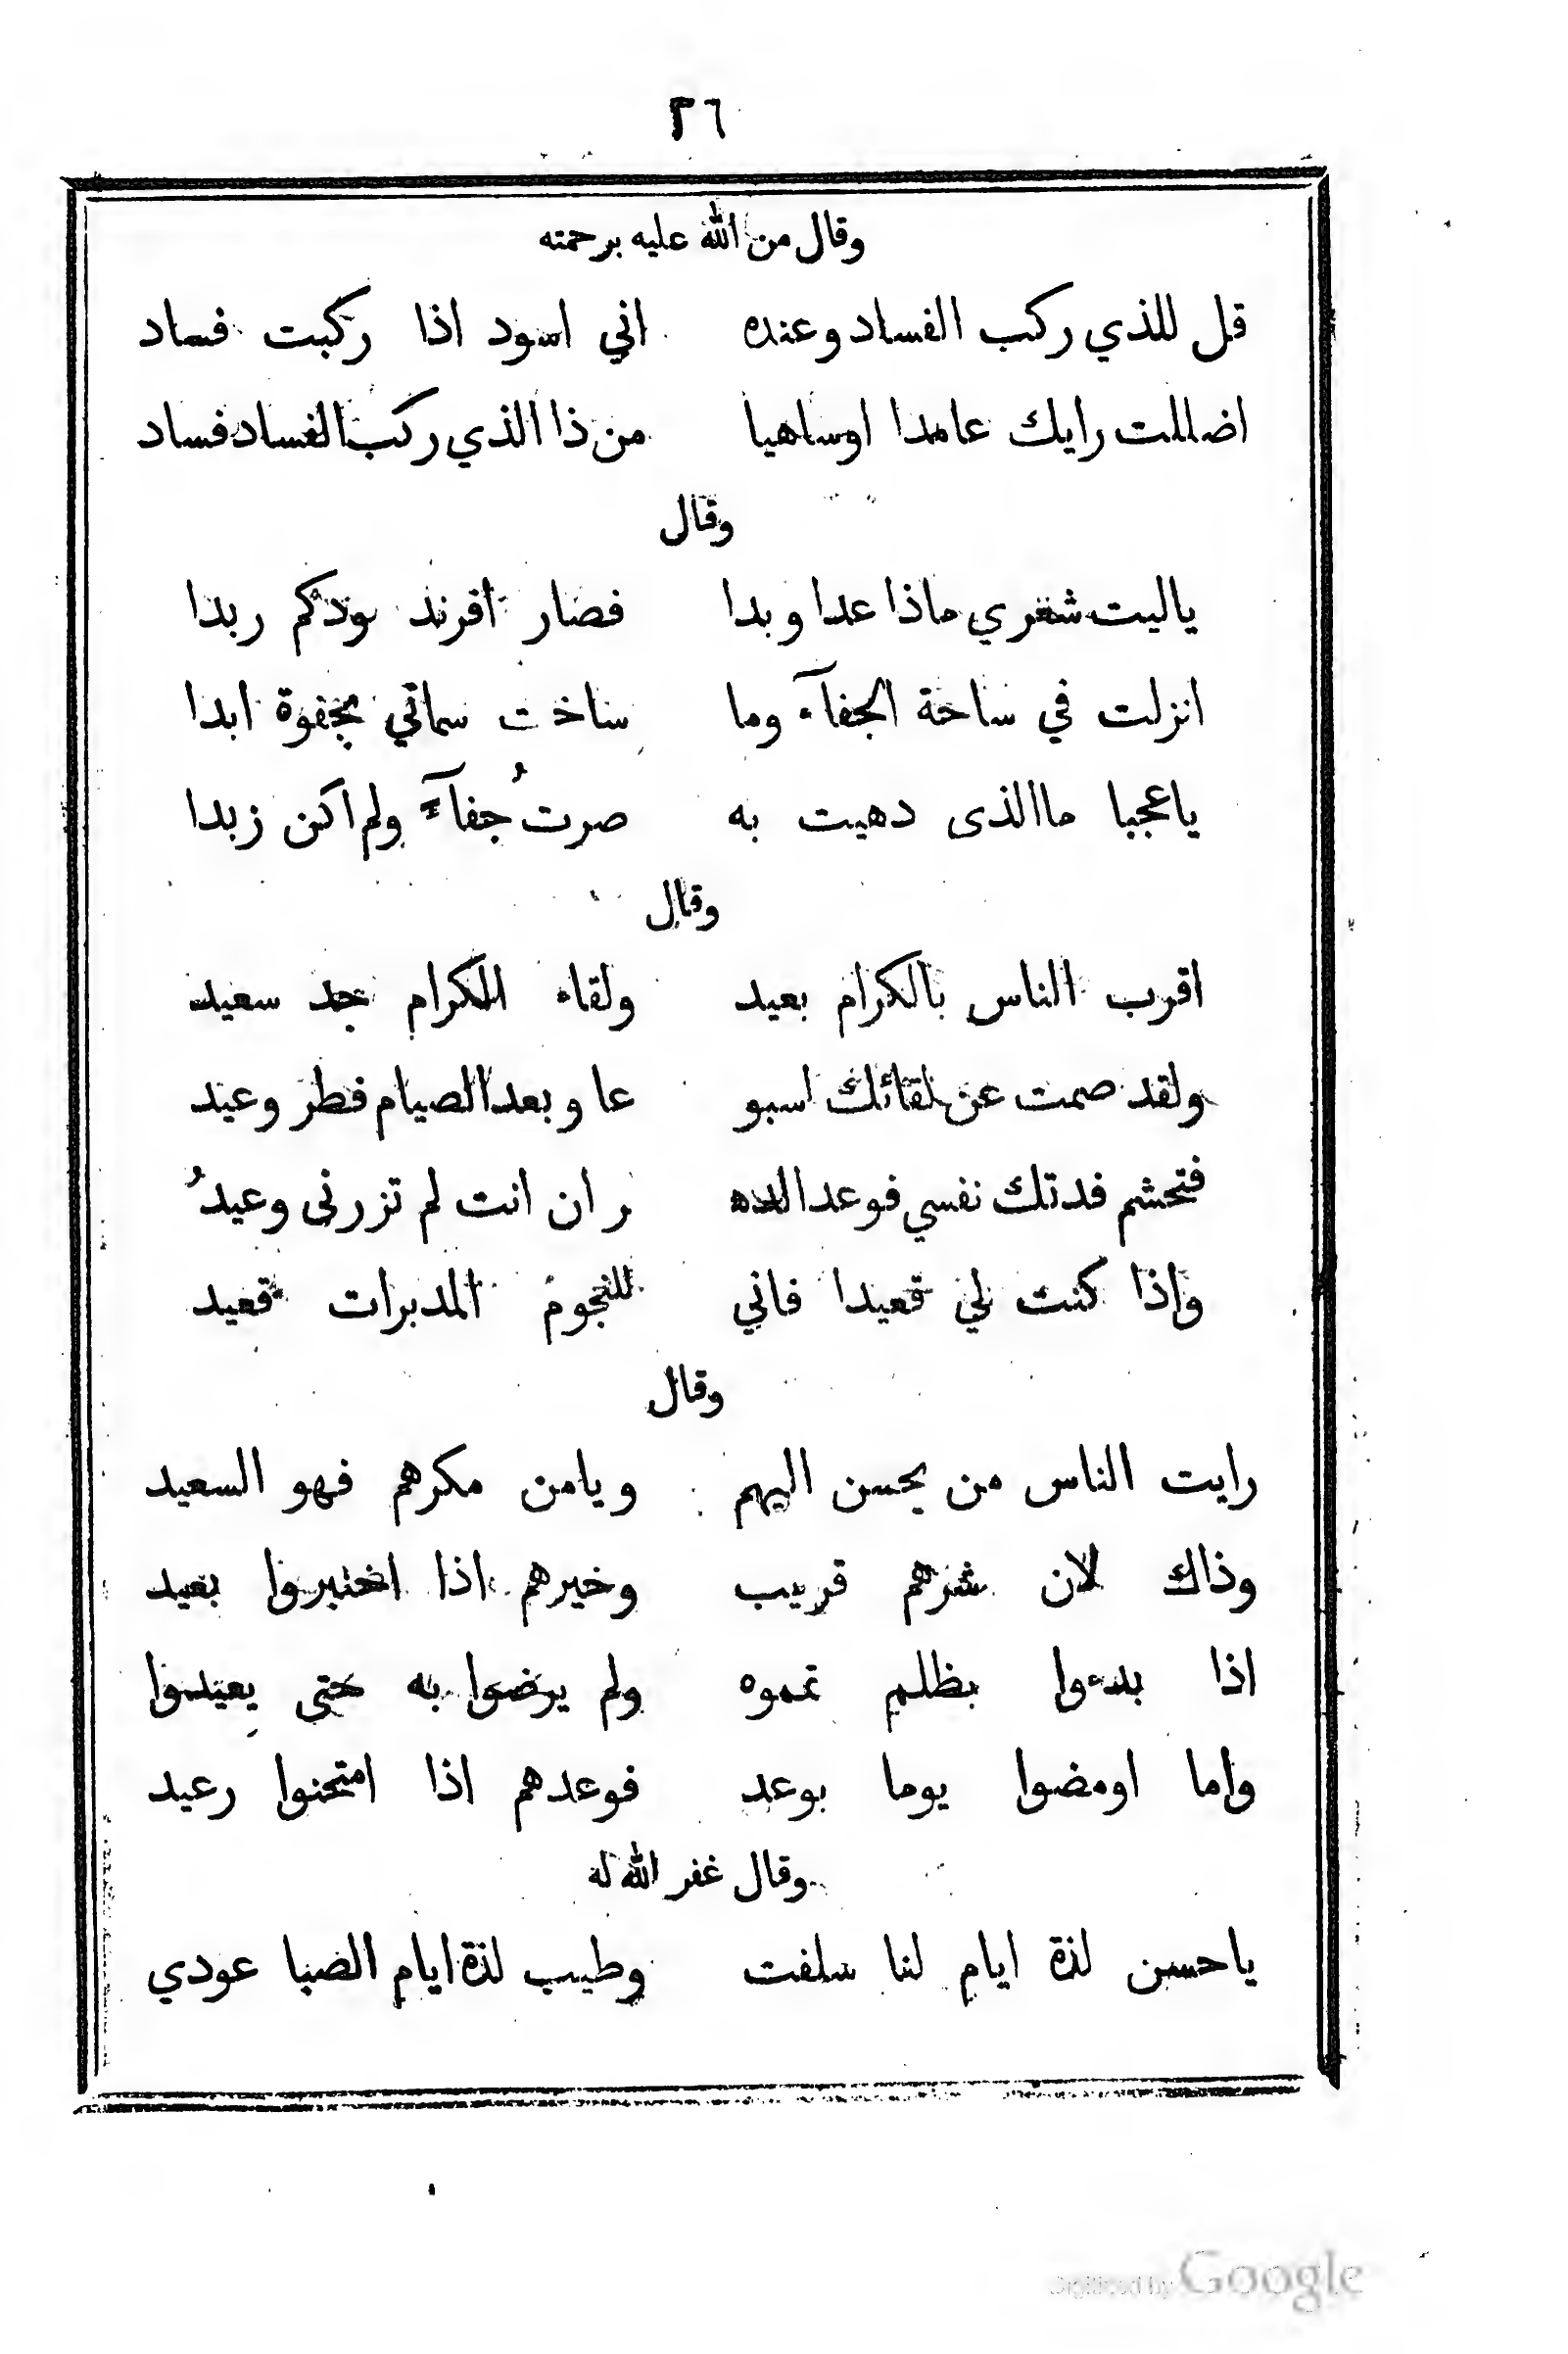 ٢٦
وقال من الله عليه برحمته
قل للذي ركب الفساد وعنده اني اسود اذا ركبت فساد
اضللت رايك عامدا اوساهيا من ذا الذي ركب الفساد فساد
وقال
ياليت شعري ماذا عدا وبدا فصار افرند ودكم ربدا
انزلت في ساحة الجفآء وما ساخت سماتي بجفوة ابدا
ياعجبا ماالذى دهيت به صرتُ جفآءً ولم اكن زبدا
وقال
اقرب الناس بالكرام بعيد ولقاء الكرام جد سعيد
ولقد صمت عن لقائك اسبو عا وبعد الصيام فطر وعيد
فتجشم فدتك نفسي فوعد الده ر ان انت لم تزرنى وعيدُ
واذا كنت لي قعيدا فاني للنجوم المدبرات قعيد
وقال
رايت الناس من يحسن اليهم ويامن مكرهم فهو السعيد
وذاك لان شرهم قريب وخيرهم اذا اختبروا بعيد
اذا بدءوا بظلم تمموه ولم يرضوا به حتى يعيدوا
واما اومضوا يوما بوعد فوعدهم اذا امتحنوا رعيد
وقال غفر الله له
ياحسن لذة ايام لنا سلفت وطيب لذة ايام الصبا عودي
Digitized by Google